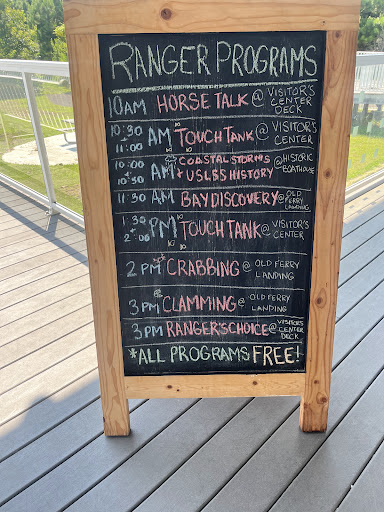 RANGER PROGRAMS
10AM HORSE TALK @ VISITOR'S CENTER DECK
10:30 + 11:00 AM TOUCH TANK @ VISITOR'S CENTER
10:00 + 10:30 AM COASTAL STORMS + USLSS HISTORY @ HISTORIC BOATHOUSE
11:30 AM BAY DISCOVERY @ OLD FERRY LANDING
1:30 + 2:00 PM TOUCH TANK @ VISITOR'S CENTER
2 PM CRABBING @ OLD FERRY LANDING
3PM CLAMMING @ OLD FERRY LANDING
3PM RANGER'S CHOICE @ VISITOR'S CENTER DECK
*ALL PROGRAMS FREE!